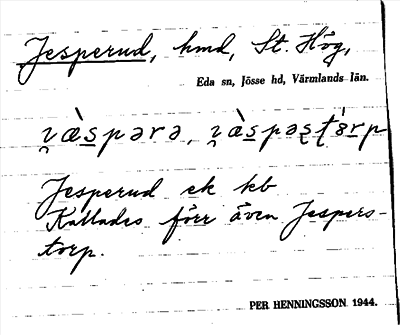 Jesperud, hmd, St. Hög,
Eda sn, Jösse hd, Värmlands län.
Jesperud ek kb
Kallades förr även Jespers-
torp.
PER HENNINGSSON 1944.